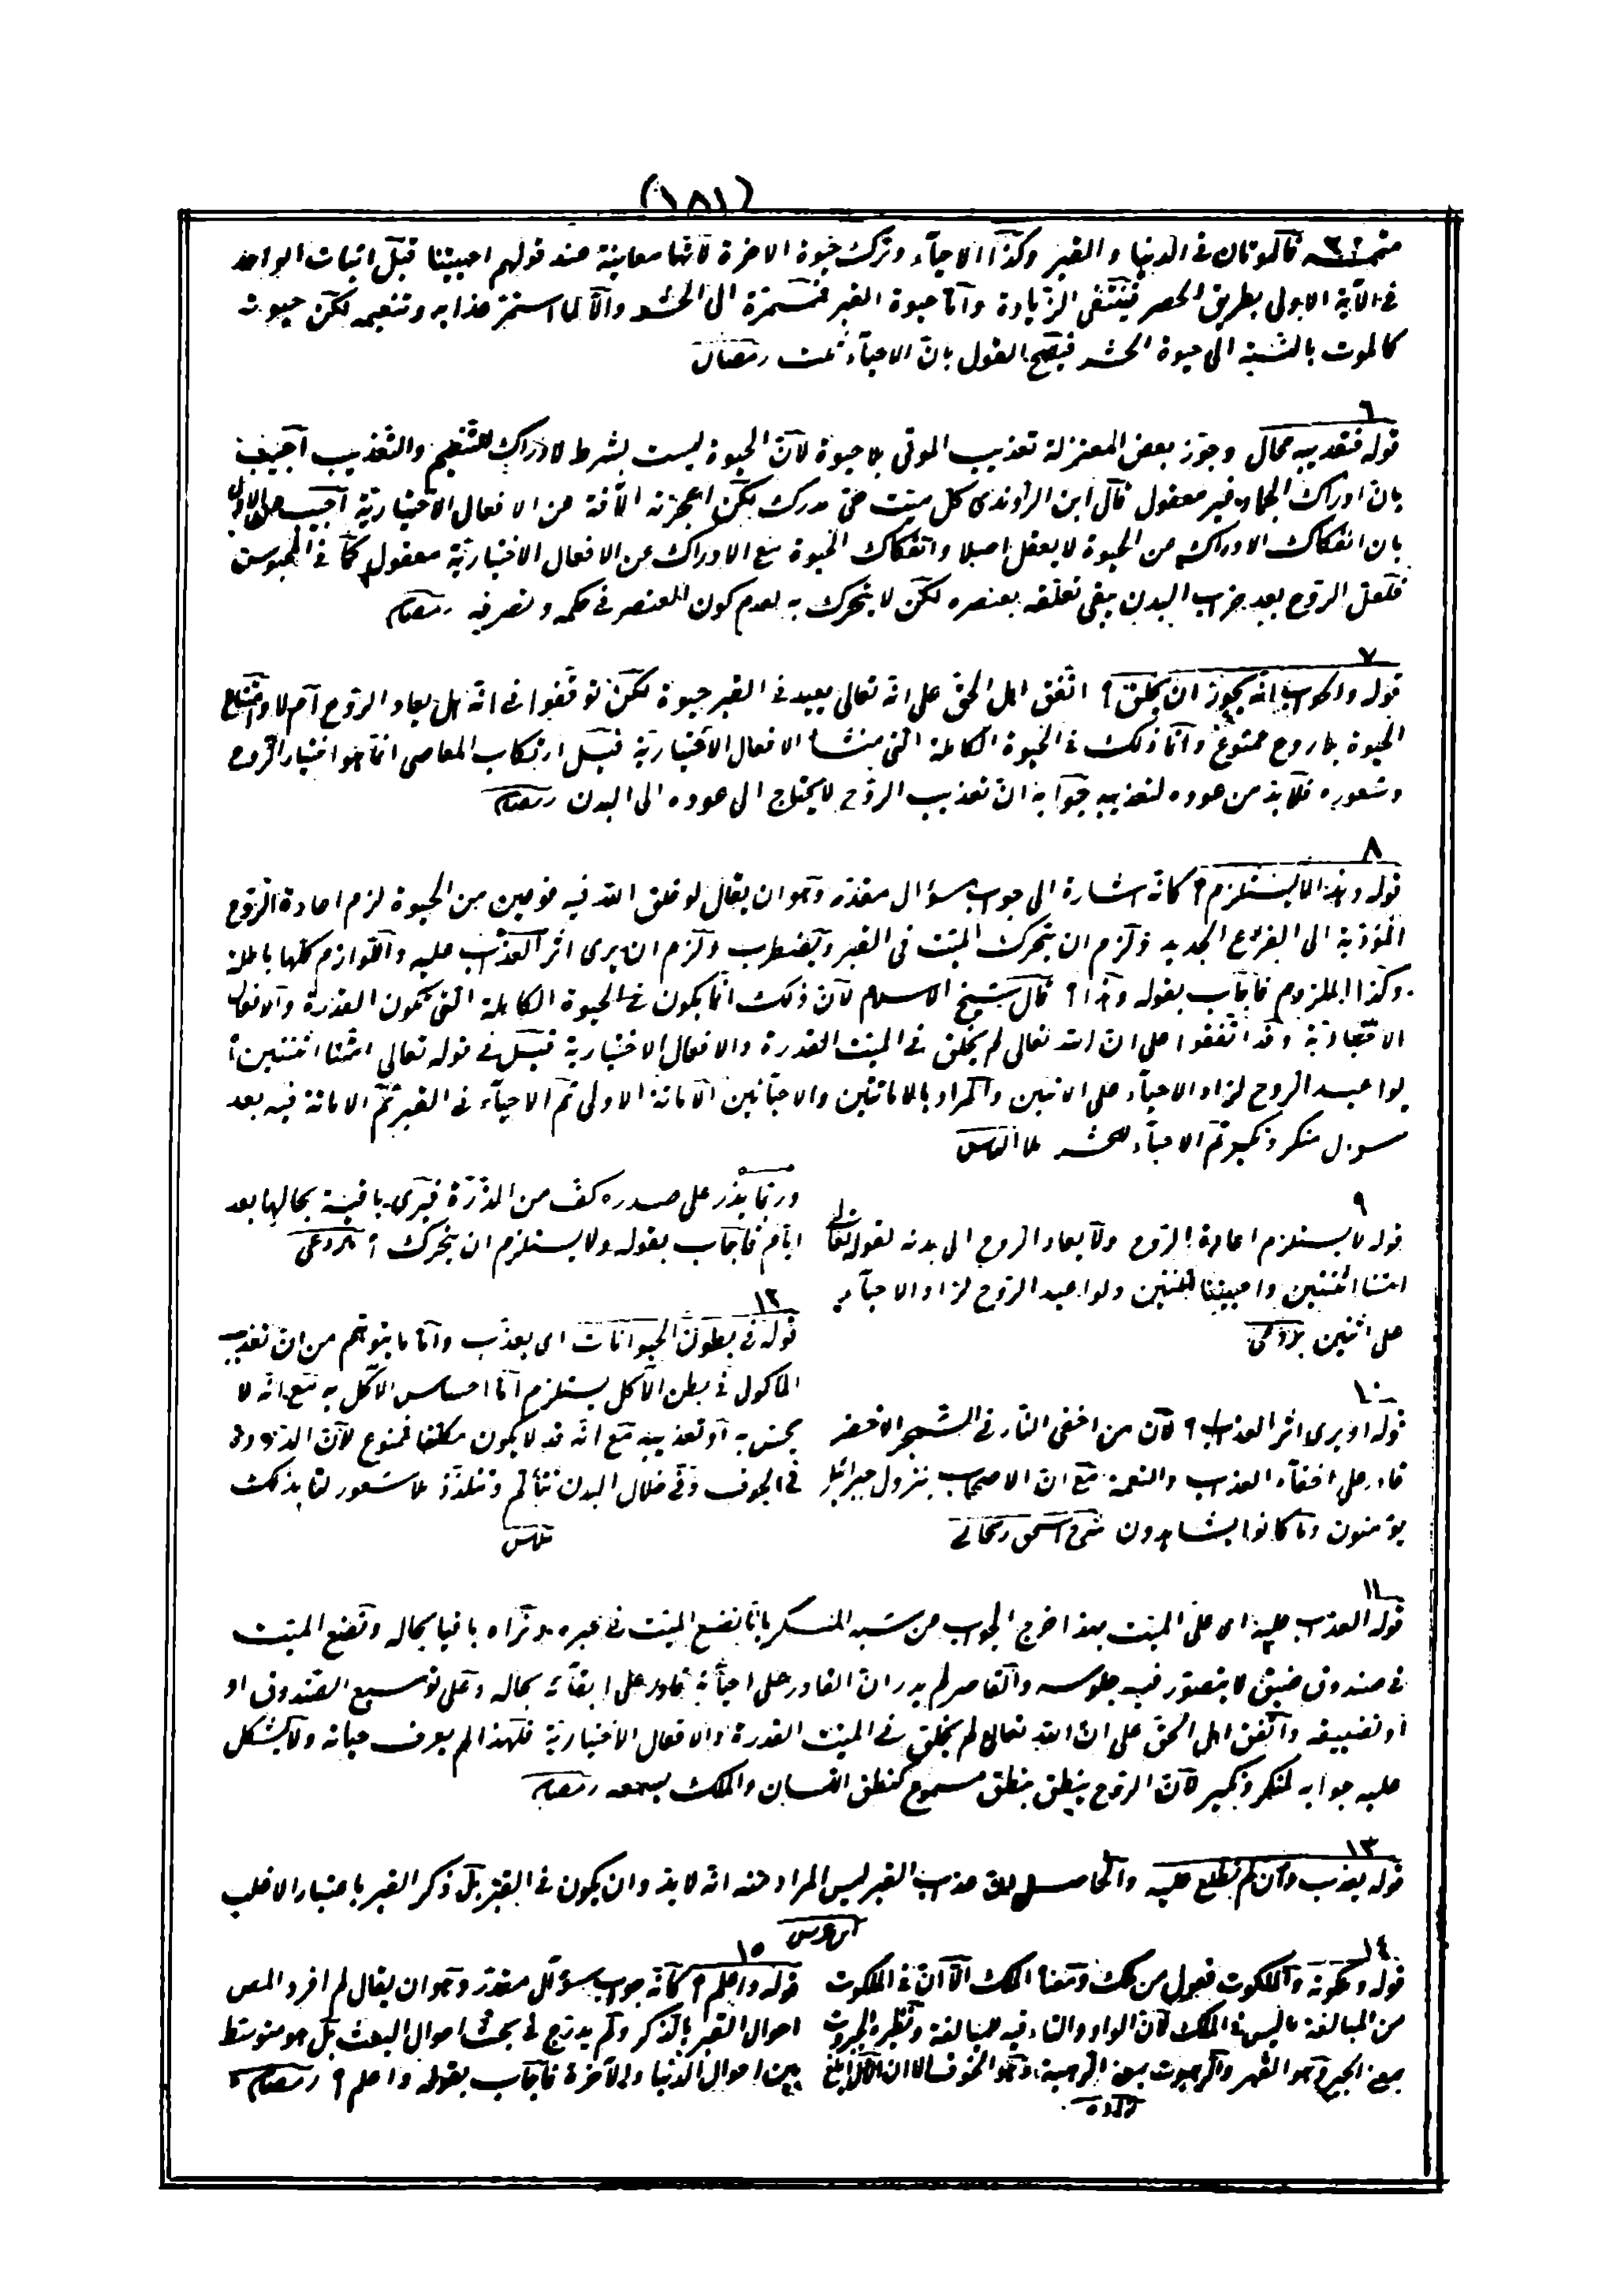 (١٨١)
فالموتان فى الدنيا والقبر وكذا الاحيآء وترك حيوة الاخرة لانها معاينة عند قولهم احييتنا قبل اثبات الواحد
فى الآية الاولى بطريق الحصر فينتفى الزيادة وامّا حيوة القبر فمستمرّة الى الحشر والّا لما استمرّ عذابه وتنعيمه لكن حيوته
كالموت بالنسبة الى حيوة الحشر فيصح القول بان الاحيآء ثلث رمضان
٦
قوله فتعذيبه محال وجوّز بعض المعتزلة تعذيب الموتى بلا حيوة لانّ الحيوة ليست بشرط لادراك التنعيم والتعذيب اجيب
بان ادراك الجماد غير معقول قال ابن الراوندى كل ميّت حىّ مدرك لكن اعجزته الآفة عن الافعال الاختياريّة اجيب عن الاول
بان انفكاك الادراك عن الحيوة لا يعقل اصلا وانفكاك الحيوة مع الادراك عن الافعال الاختياريّة معقول كما فى المحبوس
فلعل الروح بعد خراب البدن يبقى تعلّقه بعنصره لكن لا يتحرك به لعدم كون العنصر فى حكمه وتصرفه رمضان
٧
قوله والجواب انه يجوز ان يخلق ؟ اتّفق اهل الحقّ على انّه تعالى يعيد فى القبر حيوة لكن توقّفوا فى انّه هل يعاد الروح ام لا وامتناع
الحيوة بلا روح ممنوع وانّما ذلك فى الحيوة الكاملة التى منشأ الافعال الاختياريّة قيل ارتكاب المعاصى انّما هو اختيار الروح
وشعوره فلا بدّ من عوده لتعذيبه جوابه انّ تعذيب الروح لا يحتاج الى عوده الى البدن رمضان
٨
قوله وهذا لا يستلزم ؟ كانّه اشارة الى جواب سؤال مقدّر وهو ان يقال لو خلق الله فيه نوعين من الحيوة لزم اعادة الروح
المؤدّية الى النزع الجديد ولزم ان يتحرك الميّت فى القبر ويضطرب ولزم ان يرى اثر العذاب عليه واللوازم كلّها باطلة
وكذا الملزوم فاجاب بقوله وهذا ؟ قال شيخ الاسلام لانّ ذلك انّما يكون فى الحيوة الكاملة التى تكون القدرة والافعال
الاختياريّة وقد اتّفقوا على ان الله تعالى لم يخلق فى الميّت القدرة والافعال الاختيارية قيل فى قوله تعالى امتّنا اثنتين ؟
لو اعيد الروح لزاد الاحيآء على الاثنين والمراد بالاماتتين والاحيائين الاماتة الاولى ثمّ الاحيآء فى القبر ثمّ الاماتة فيه بعد
سؤال منكر ونكير ثمّ الاحيآء للحشر
٩
قوله لا يستلزم اعادة الروح ولا يعاد الروح الى بدنه لقوله تعالى
امتنا اثنتين واحييتنا اثنتين ولو اعيد الروح لزاد الاحيآء
على اثنين
١٠
قوله او يرى اثر العذاب ؟ لانّ من اخفى النّار فى الشجر الاخضر
قادر على اخفآء العذاب والنعمة مع انّ الاصحاب بنزول جبرائيل
يؤمنون وما كانوا يشاهدون
وربّما يذرّ على صدره كفّ من الذرّة فيرى باقية بحالها بعد
ايّام فاجاب بقوله ولا يستلزم ان يتحرك ؟
١٢
قوله فى بطون الحيوانات اى يعذّب وامّا ما يتوهّم من انّ تعذيب
المأكول فى بطن الآكل يستلزم امّا احساس الآكل به مع انّه لا
يحسّ به او تعذيبه مع انّه قد لا يكون مكلّفا فممنوع لانّ الدودة
فى الجوف وفى خلال البدن تتألّم وتتلذّذ بلا شعور لنا بذلك
١١
قوله العذاب عليه اى على الميّت بهذا خرج الجواب عن شبه المنكر بانّا نضع الميّت فى قبره ونراه باقيا بحاله ونضع الميّت
فى صندوق ضيّق لا يتصوّر فيه جلوسه والقاصر لم يدر انّ القادر على احيائه قادر على ابقائه بحاله وعلى توسيع الصندوق او
او تضييقه واتّفق اهل الحقّ على انّ الله تعالى لم يخلق فى الميّت القدرة والافعال الاختياريّة فلهذا لم يعرف حياته ولا يشكل
عليه جوابه لمنكر ونكير لانّ الروح ينطق بنطق مسموع كنطق اللسان والملك يسمعه رمضان
١٣
قوله يعذب وان لم نطلع عليه والحاصل ان عذاب القبر ليس المراد منه انّه لا بدّ وان يكون فى القبر بل ذكر القبر باعتبار الاغلب
١٤
قوله وملكوته والملكوت فعول من ملك ومعناه الملك الّا انّ فى الملكوت
من المبالغة ما ليس فى الملك لانّ الواو والتاء فيه للمبالغة ونظيره الجبروت
بمعنى الجبر وهو القهر والرهبوت بمعنى الرهبة وهو الخوف
١٥
قوله واعلم ؟ كانّه جواب سؤال مقدّر وهو ان يقال لم افرد المص
احوال القبر بالذكر ولم يدرج فى بحث احوال البعث بل هو متوسّط
بين احوال الدنيا والآخرة فاجاب بقوله واعلم ؟ رمضان